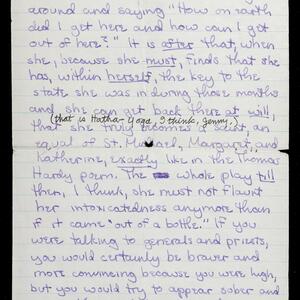 around and saying "How on earth
did I get here and how can I get
out of here?" It is after that, when
she, because she must, finds that she
has, within herself, the key to the
state she was in during those months
and she can get back there at will,
(that is Hatha-Yoga, I think, Jenny)
that she truly becomes a saint, an
equal of St. Michael, Margaret, and
Katherine, exactly like in the Thomas
Hardy poem. The whole play till
then, I think, she must not flaunt
her intoxicatedness anymore than
if it came "out of a bottle." If you
were talking to generals and priests,
you would certainly be braver and
more convincing because you were high,
but you would try to appear sober and